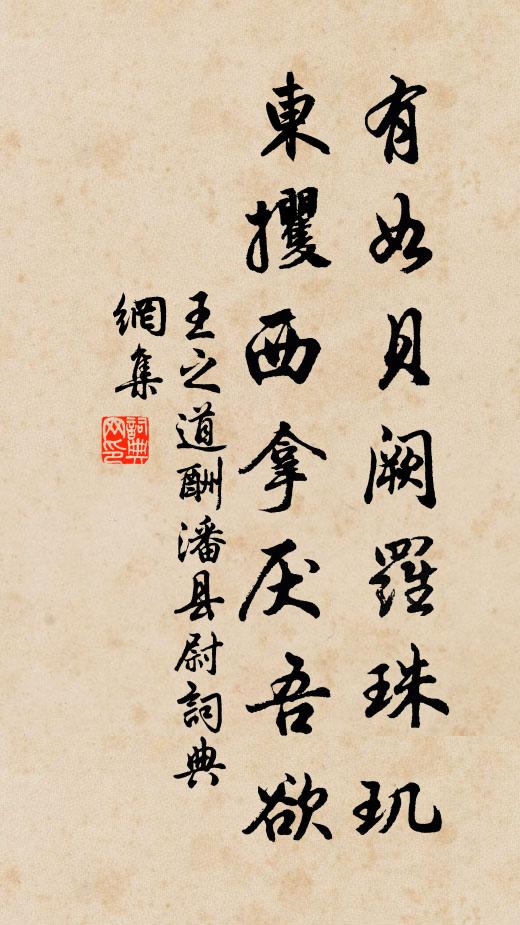 有如貝阙羅珠玑
東攫西拿厌吾欲
王之道酬潘县尉詞典
網集
詞典网印